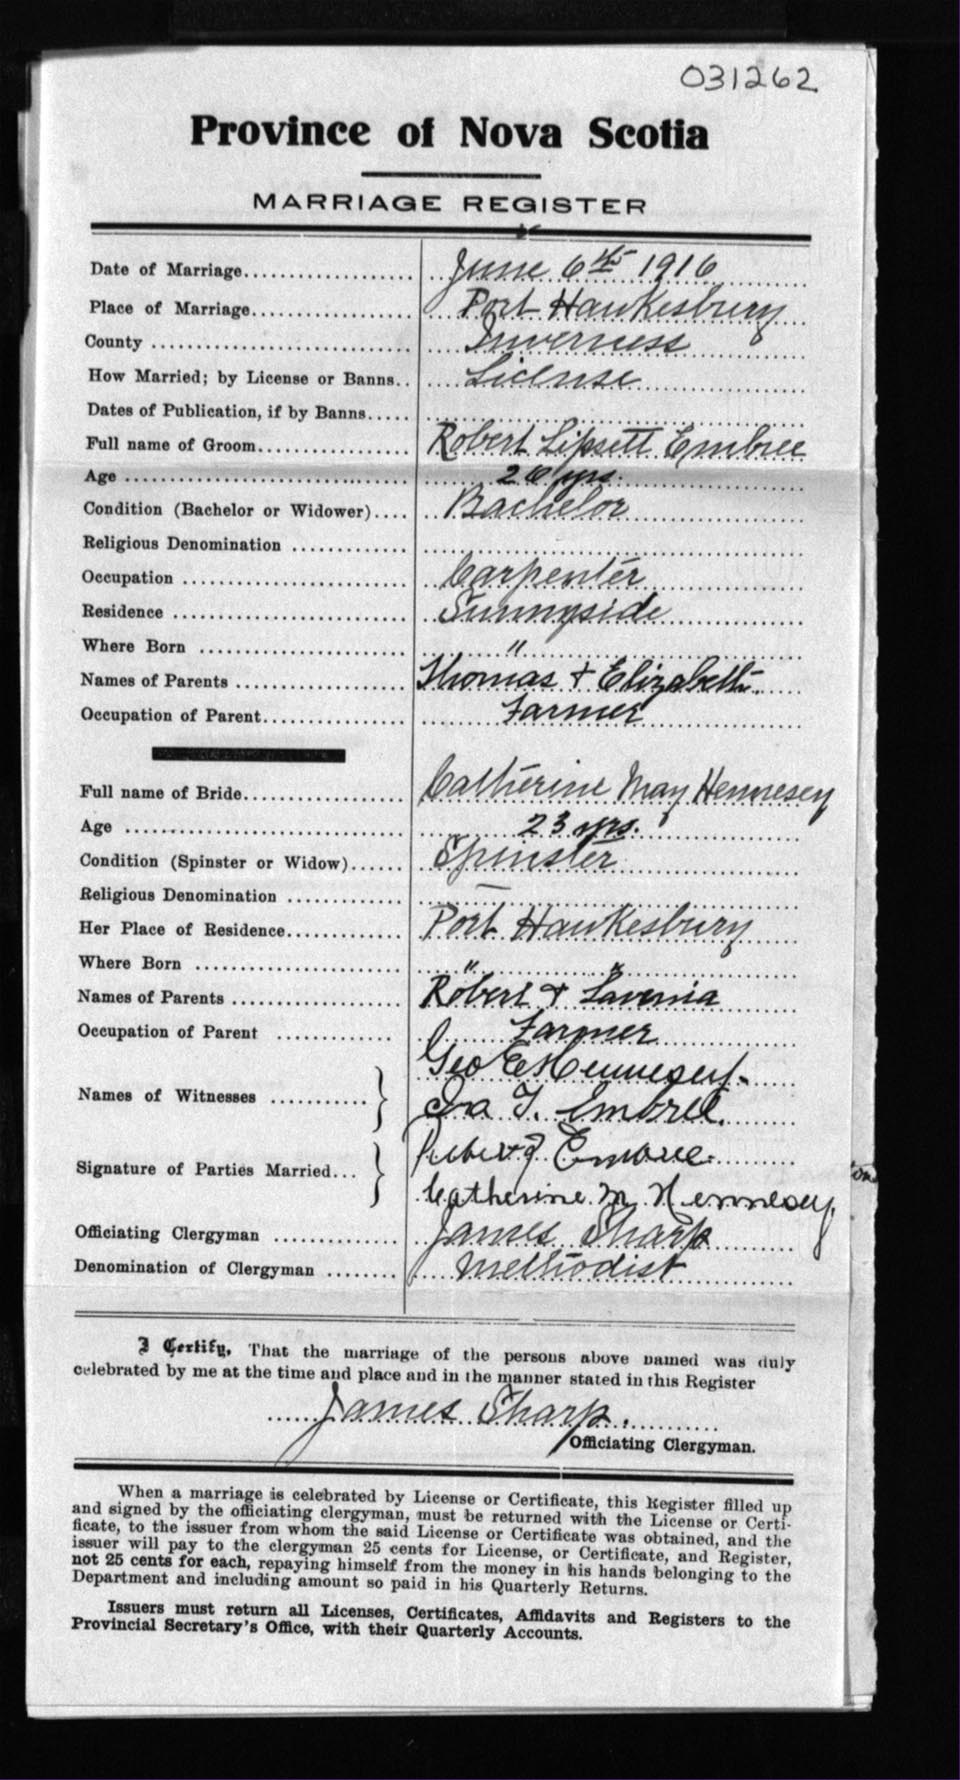 031262
Province of Nova Scotia
MARRIAGE REGISTER
Date of Marriage.................... June 6th 1916
Place of Marriage.................. Port Hawkesbury
County ............................. Inverness
How Married; by License or Banns.. License
Dates of Publication, if by Banns.....
Full name of Groom.................. Robert Lipsett Embree
Age ................................ 26 yrs.
Condition (Bachelor or Widower).... Bachelor
Religious Denomination .............
Occupation ......................... Carpenter
Residence .......................... Sunnyside
Where Born ......................... "
Names of Parents ................... Thomas + Elizabeth
Occupation of Parent................ Farmer
Full name of Bride.................. Catherine May Hennesey
Age ................................ 23 yrs.
Condition (Spinster or Widow)...... Spinster
Religious Denomination ............. —
Her Place of Residence.............. Port Hawkesbury
Where Born ......................... " "
Names of Parents ................... Robert + Lavenia
Occupation of Parent ............... Farmer
Names of Witnesses ........... } Geo E Hennesey.
Ira T. Embree.
Signature of Parties Married... } Robert Embree.
Catherine M Hennesey
Officiating Clergyman .............. James Sharp
Denomination of Clergyman ........ Methodist
I Certify, That the marriage of the persons above named was duly
celebrated by me at the time and place and in the manner stated in this Register
James Sharp.
Officiating Clergyman.
When a marriage is celebrated by License or Certificate, this Register filled up
and signed by the officiating clergyman, must be returned with the License or Certi-
ficate, to the issuer from whom the said License or Certificate was obtained, and the
issuer will pay to the clergyman 25 cents for License, or Certificate, and Register,
not 25 cents for each, repaying himself from the money in his hands belonging to the
Department and including amount so paid in his Quarterly Returns.
Issuers must return all Licenses, Certificates, Affidavits and Registers to the
Provincial Secretary's Office, with their Quarterly Accounts.